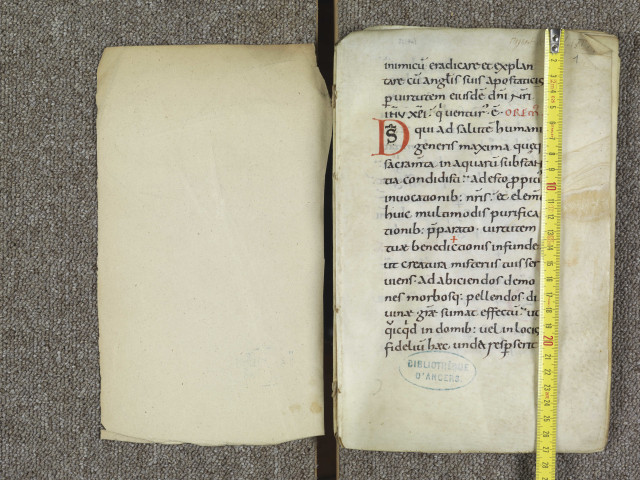 inimicū eradicare et explan
tare cū anglis suis apostaticis
p virtutem eiusdē dnī nrī
ihu xpi. q uenturus ē. OREM
DS qui ad salutē humani
generis maxima quęq
sacramta in aquarū substan
tia condidisti: adesto ppitiu
inuocationib: nris. & elem
huic multimodis purifica
tionib: pparato. uirtutem
tuæ benedictionis infunde
ut creatura misterus tuis ser
uiens. Ad abiciendos demo
nes morbosq: pellendos di
uinæ græ sumat effectū. ut
qicqd in domib: uel in locis
fidelium hæc unda resperserit
BIBLIOTHÈQUE
D'ANGERS